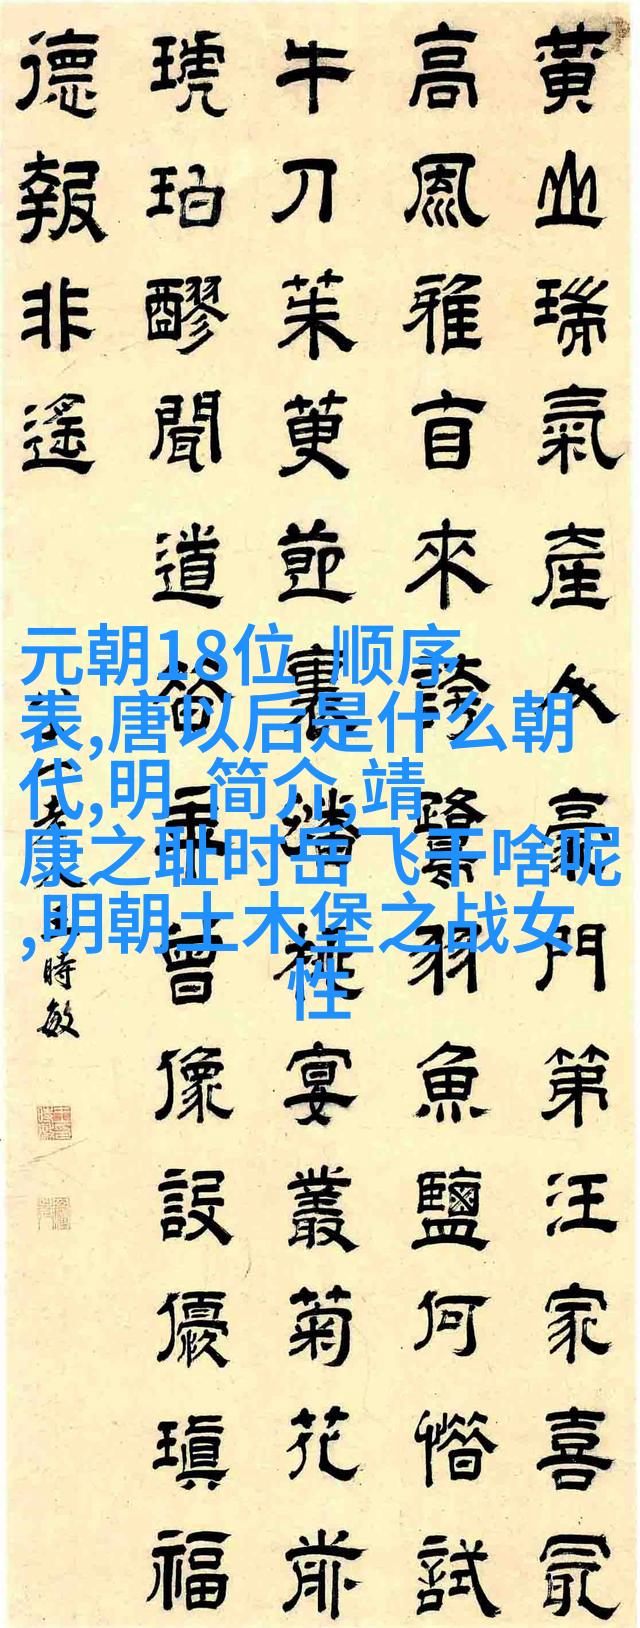 黃山瑞氣產人豪門第汪家喜冣
高風雅來誇鷺羽魚鹽何惜試
牛刀茱萸節裏宴叢菊花前
琥珀醪聞道年曾像設優瑱福
德報非遙
老人王時敏
元朝18位 顺序
表,唐以后是什么朝
代,明 简介,靖
康之耻时岳飞干啥呢
,明朝土木堡之战女
性